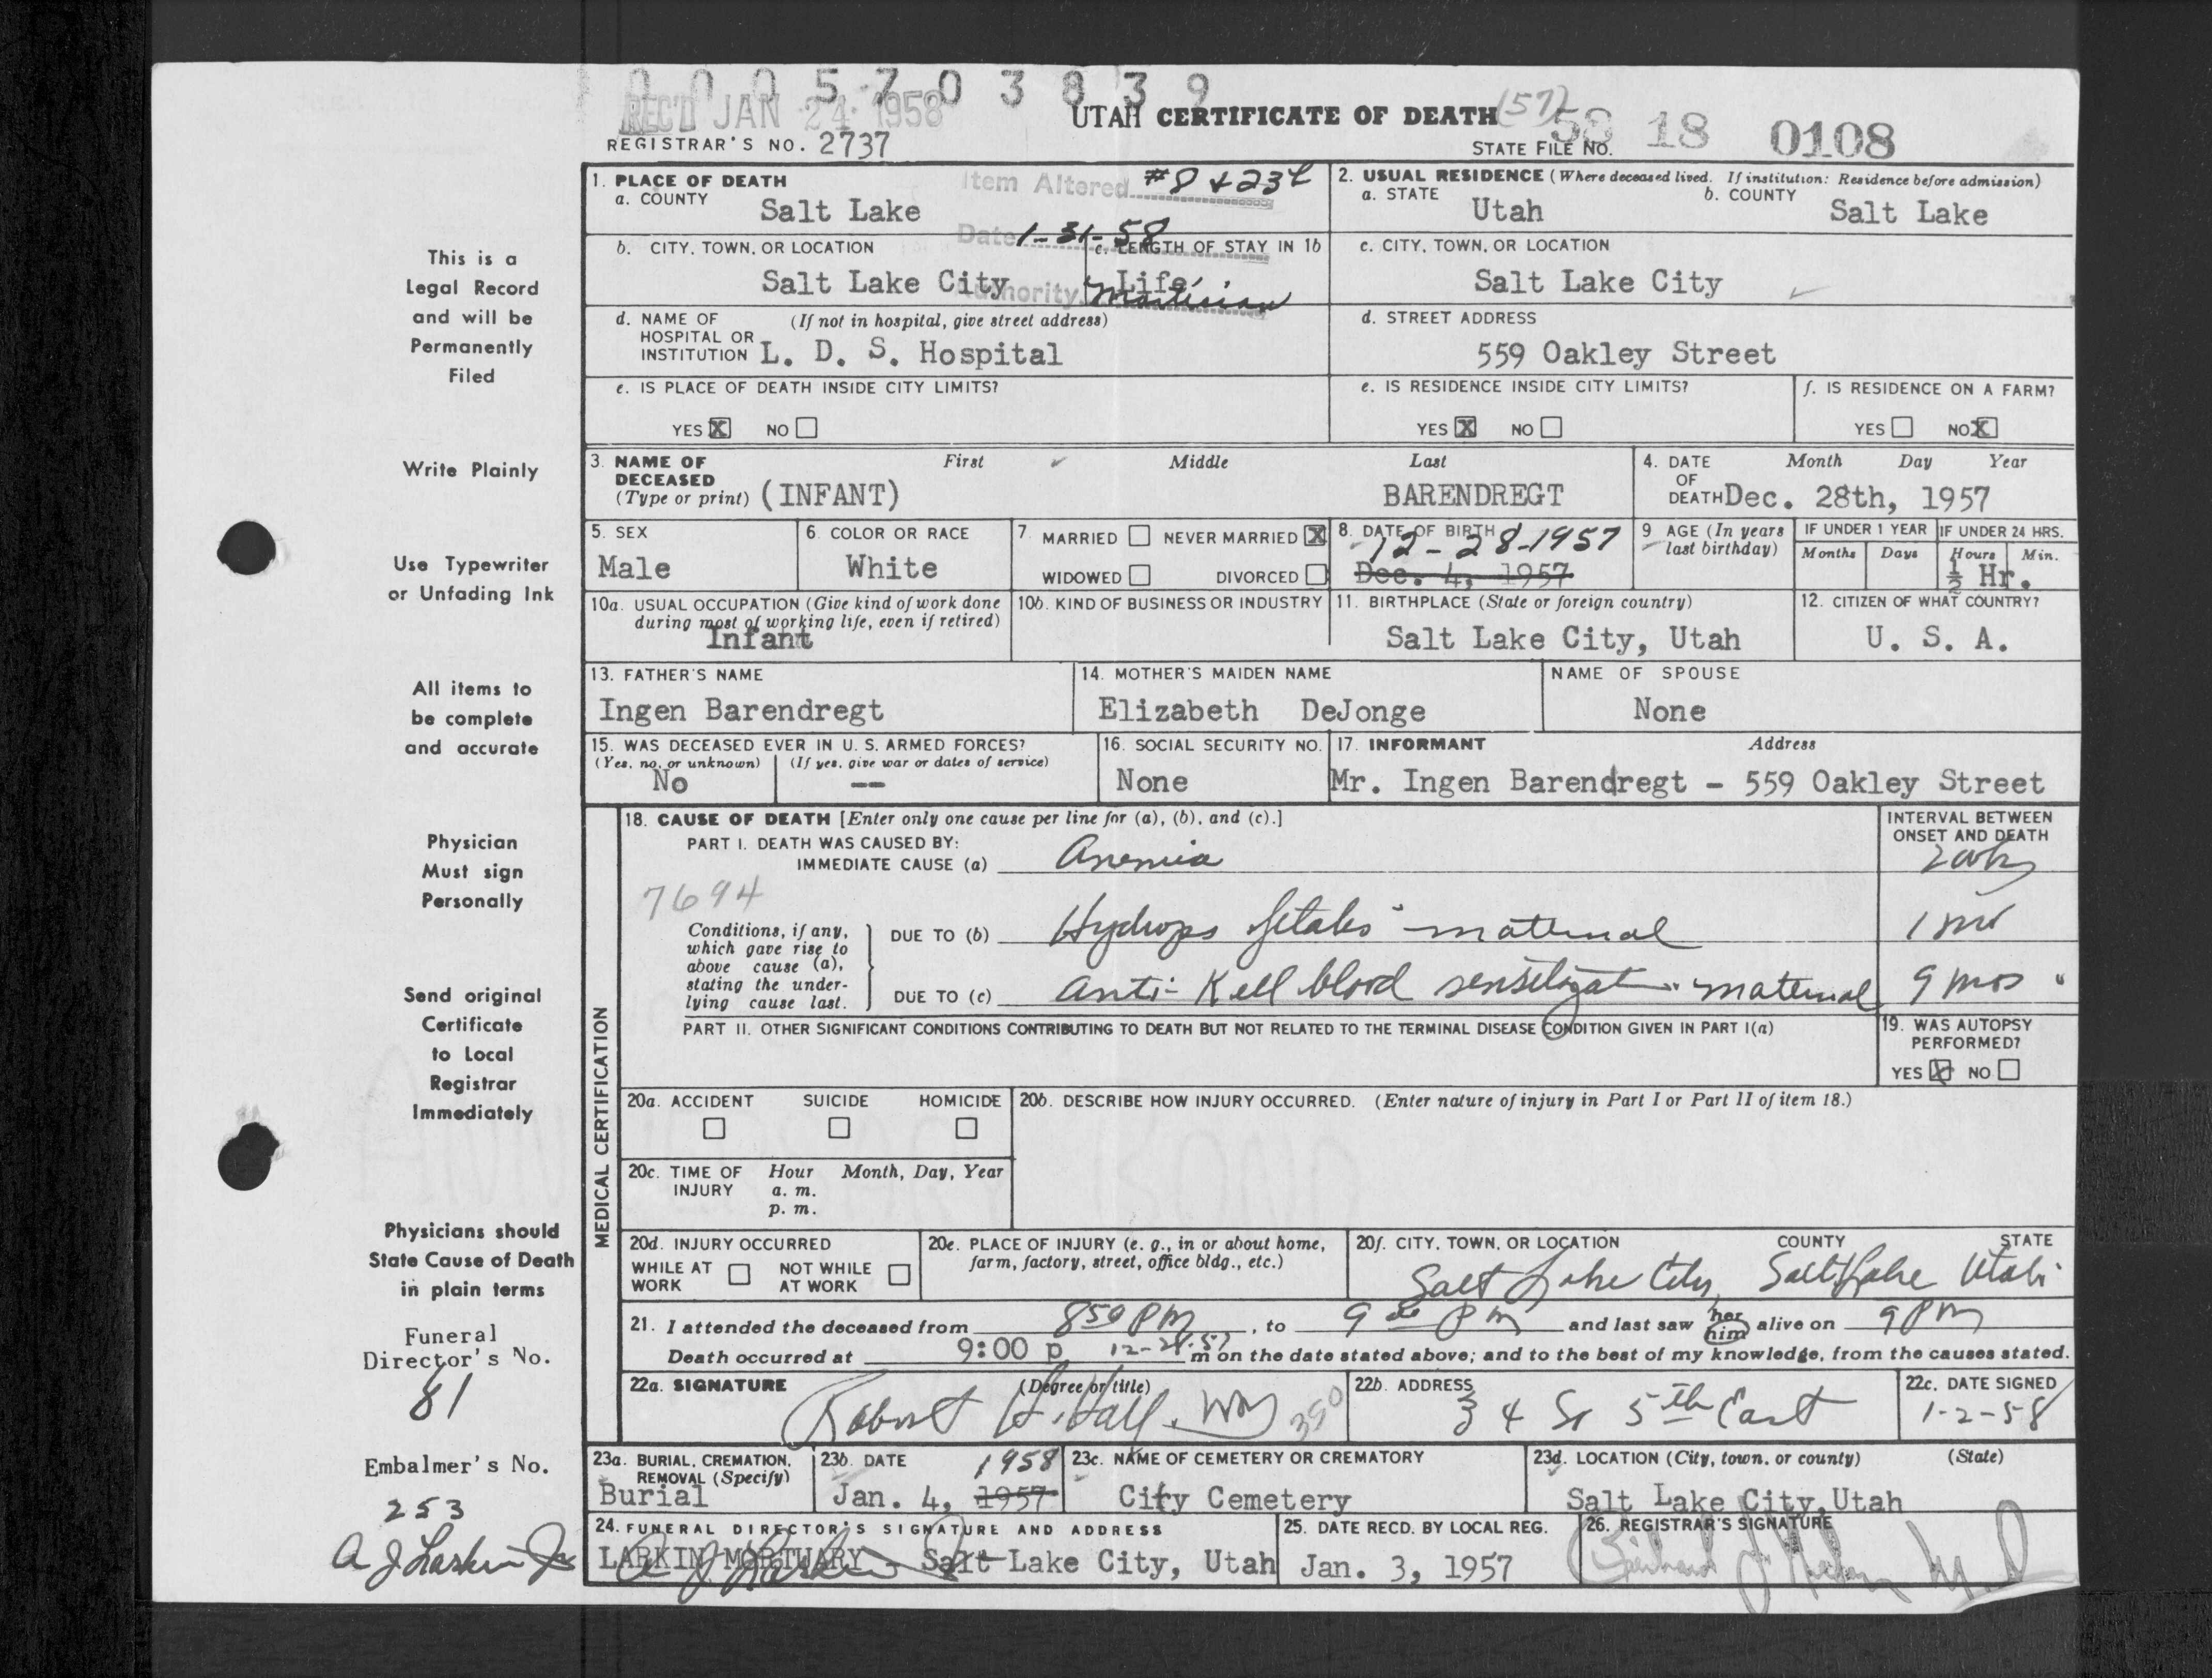 0 0 0 5 7 0 3 8 3 9
REC'D JAN 24 1958
UTAH CERTIFICATE OF DEATH (57)
REGISTRAR'S NO. 2737
STATE FILE NO. 58 18 0108
1. PLACE OF DEATH
a. COUNTY Salt Lake
Item Altered #8 & 23b
Date 1-31-58
Authority Mortician
2. USUAL RESIDENCE (Where deceased lived. If institution: Residence before admission)
a. STATE Utah b. COUNTY Salt Lake
b. CITY, TOWN, OR LOCATION Salt Lake City
c. LENGTH OF STAY IN 1b Life
c. CITY, TOWN, OR LOCATION Salt Lake City
d. NAME OF HOSPITAL OR INSTITUTION (If not in hospital, give street address) L. D. S. Hospital
d. STREET ADDRESS 559 Oakley Street
e. IS PLACE OF DEATH INSIDE CITY LIMITS?
YES X NO
e. IS RESIDENCE INSIDE CITY LIMITS?
YES X NO
f. IS RESIDENCE ON A FARM?
YES NO X
3. NAME OF DECEASED (Type or print) First Middle Last
(INFANT) BARENDREGT
4. DATE OF DEATH Month Day Year
Dec. 28th, 1957
5. SEX Male
6. COLOR OR RACE White
7. MARRIED NEVER MARRIED X
WIDOWED DIVORCED
8. DATE OF BIRTH 12-28-1957
Dec. 4, 1957
9 AGE (In years last birthday)
IF UNDER 1 YEAR Months Days
IF UNDER 24 HRS. Hours Min.
½ Hr.
10a. USUAL OCCUPATION (Give kind of work done during most of working life, even if retired)
Infant
10b. KIND OF BUSINESS OR INDUSTRY
11. BIRTHPLACE (State or foreign country)
Salt Lake City, Utah
12. CITIZEN OF WHAT COUNTRY?
U. S. A.
13. FATHER'S NAME
Ingen Barendregt
14. MOTHER'S MAIDEN NAME
Elizabeth DeJonge
NAME OF SPOUSE
None
15. WAS DECEASED EVER IN U. S. ARMED FORCES?
(Yes, no, or unknown) (If yes, give war or dates of service)
No --
16. SOCIAL SECURITY NO.
None
17. INFORMANT Address
Mr. Ingen Barendregt - 559 Oakley Street
MEDICAL CERTIFICATION
18. CAUSE OF DEATH [Enter only one cause per line for (a), (b), and (c).]
INTERVAL BETWEEN ONSET AND DEATH
PART I. DEATH WAS CAUSED BY:
IMMEDIATE CAUSE (a) Anemia
7694
Conditions, if any, which gave rise to above cause (a), stating the underlying cause last.
DUE TO (b) Hydrops fetalis - maternal
DUE TO (c) Anti-Kell blood sensitization maternal 9 mos
PART II. OTHER SIGNIFICANT CONDITIONS CONTRIBUTING TO DEATH BUT NOT RELATED TO THE TERMINAL DISEASE CONDITION GIVEN IN PART I(a)
19. WAS AUTOPSY PERFORMED?
YES X NO
20a. ACCIDENT SUICIDE HOMICIDE
20b. DESCRIBE HOW INJURY OCCURRED. (Enter nature of injury in Part I or Part II of item 18.)
20c. TIME OF INJURY Hour Month, Day, Year
a. m.
p. m.
20d. INJURY OCCURRED
WHILE AT WORK NOT WHILE AT WORK
20e. PLACE OF INJURY (e. g., in or about home, farm, factory, street, office bldg., etc.)
20f. CITY, TOWN, OR LOCATION COUNTY STATE
Salt Lake City, Salt Lake Utah
21. I attended the deceased from 8 50 PM, to 9 00 PM and last saw her him alive on 9 PM
Death occurred at 9:00 p 12-28-57 m on the date stated above; and to the best of my knowledge, from the causes stated.
22a. SIGNATURE (Degree or title)
Robert H. Hall, MD 350
22b. ADDRESS
34 So 5th East
22c. DATE SIGNED
1-2-58
23a. BURIAL, CREMATION, REMOVAL (Specify)
Burial
23b. DATE 1958
Jan. 4, 1957
23c. NAME OF CEMETERY OR CREMATORY
City Cemetery
23d. LOCATION (City, town, or county) (State)
Salt Lake City, Utah
24. FUNERAL DIRECTOR'S SIGNATURE AND ADDRESS
LARKIN MORTUARY - Salt Lake City, Utah
A J Larkin Jr
25. DATE RECD. BY LOCAL REG.
Jan. 3, 1957
26. REGISTRAR'S SIGNATURE
This is a
Legal Record
and will be
Permanently
Filed
Write Plainly
Use Typewriter
or Unfading Ink
All items to
be complete
and accurate
Physician
Must sign
Personally
Send original
Certificate
to Local
Registrar
Immediately
Physicians should
State Cause of Death
in plain terms
Funeral
Director's No.
81
Embalmer's No.
253
A J Larkin Jr